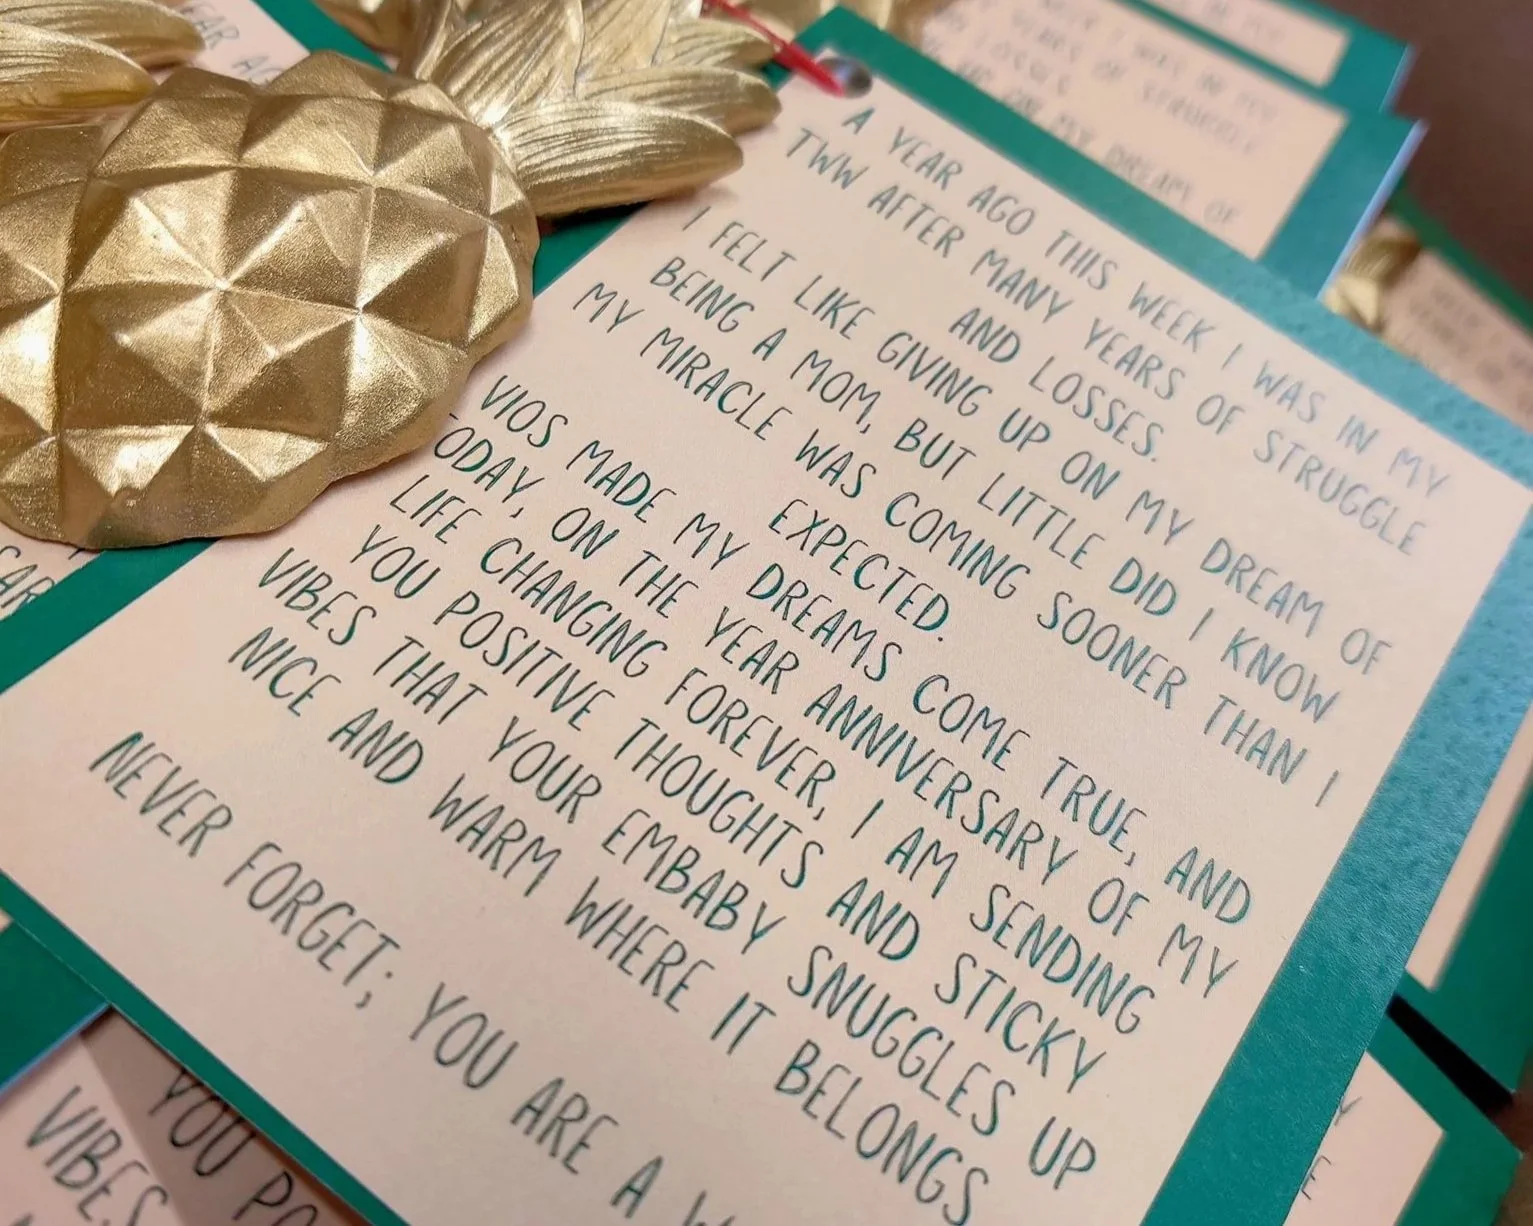 A YEAR AGO THIS WEEK I WAS IN MY
TWW AFTER MANY YEARS OF STRUGGLE
AND LOSSES.
I FELT LIKE GIVING UP ON MY DREAM OF
BEING A MOM, BUT LITTLE DID I KNOW
MY MIRACLE WAS COMING SOONER THAN I
EXPECTED.
VIOS MADE MY DREAMS COME TRUE, AND
TODAY, ON THE YEAR ANNIVERSARY OF MY
LIFE CHANGING FOREVER, I AM SENDING
YOU POSITIVE THOUGHTS AND STICKY
VIBES THAT YOUR EMBABY SNUGGLES UP
NICE AND WARM WHERE IT BELONGS
NEVER FORGET; YOU ARE A
YOU PO
VIBES